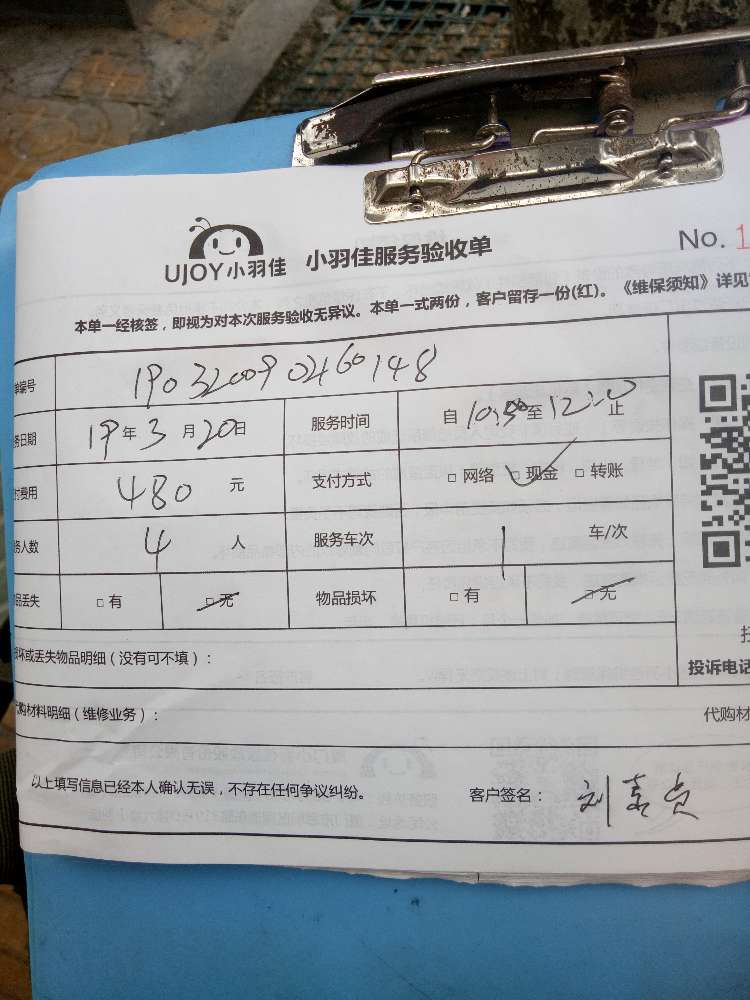 UJOY小羽佳 小羽佳服务验收单 No. 1
本单一经核签，即视为对本次服务验收无异议。本单一式两份，客户留存一份(红)。《维保须知》详见
单编号 190320090260148
务日期 19年3月20日 服务时间 自10:30至12:00止
付费用 480 元 支付方式 □ 网络 □ 现金 □ 转账
务人数 4 人 服务车次 1 车/次
品丢失 □ 有 □ 无 物品损坏 □ 有 □ 无
损坏或丢失物品明细（没有可不填）：
投诉电话
代购材料明细（维修业务）： 代购材
以上填写信息已经本人确认无误，不存在任何争议纠纷。 客户签名：刘嘉贞